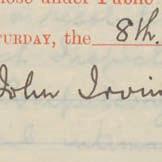 hose under Public
TURDAY, the 8th.
John Irvin